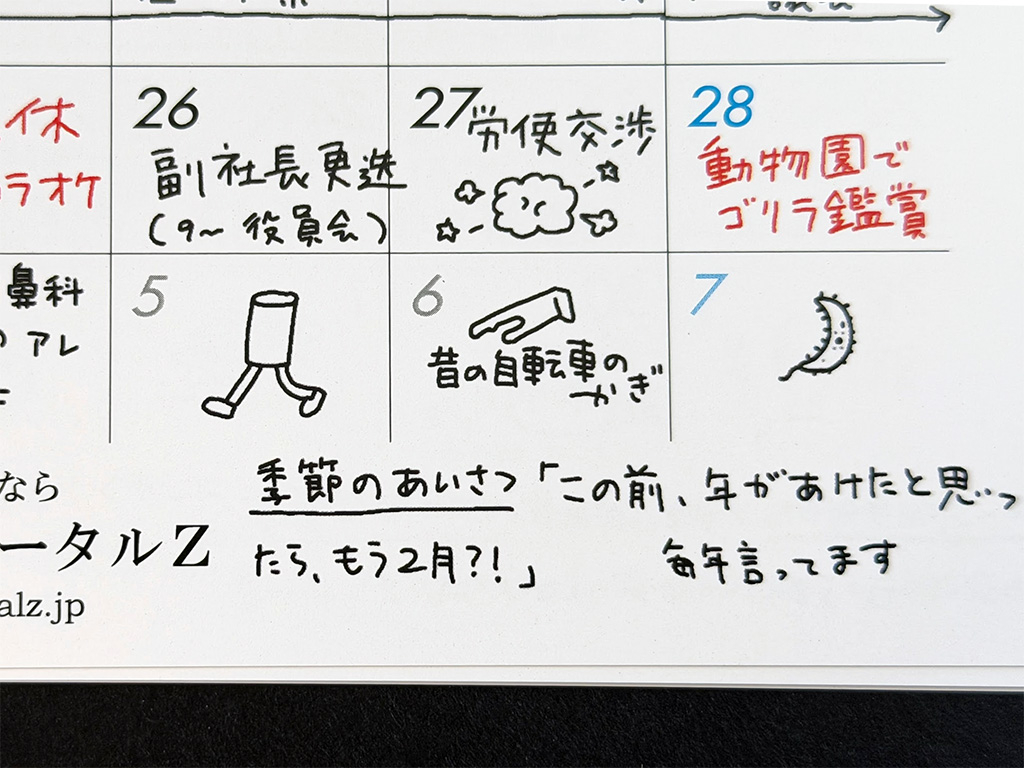 休
26
27
28
副社長更迭
労使交渉
動物園で
ラオケ
(9〜役員会)
ゴリラ鑑賞
鼻科
5
6
7
アレ
昔の自転車の
かぎ
なら
季節のあいさつ「この前、年があけたと思っ
ータルZ
たら、もう2月?!」 毎年言ってます
alz.jp